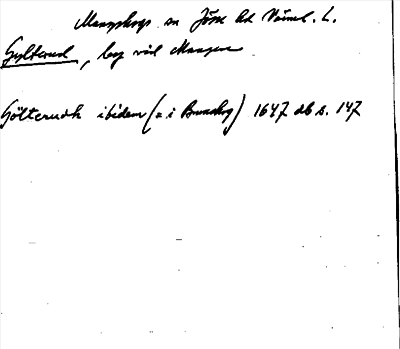 Mangskogs sn Jösse hd Värml. L.
Gylterud, låg vid Mangen
Götterudh ibidem (ɔ: i Brunskog) 1647 db s. 147